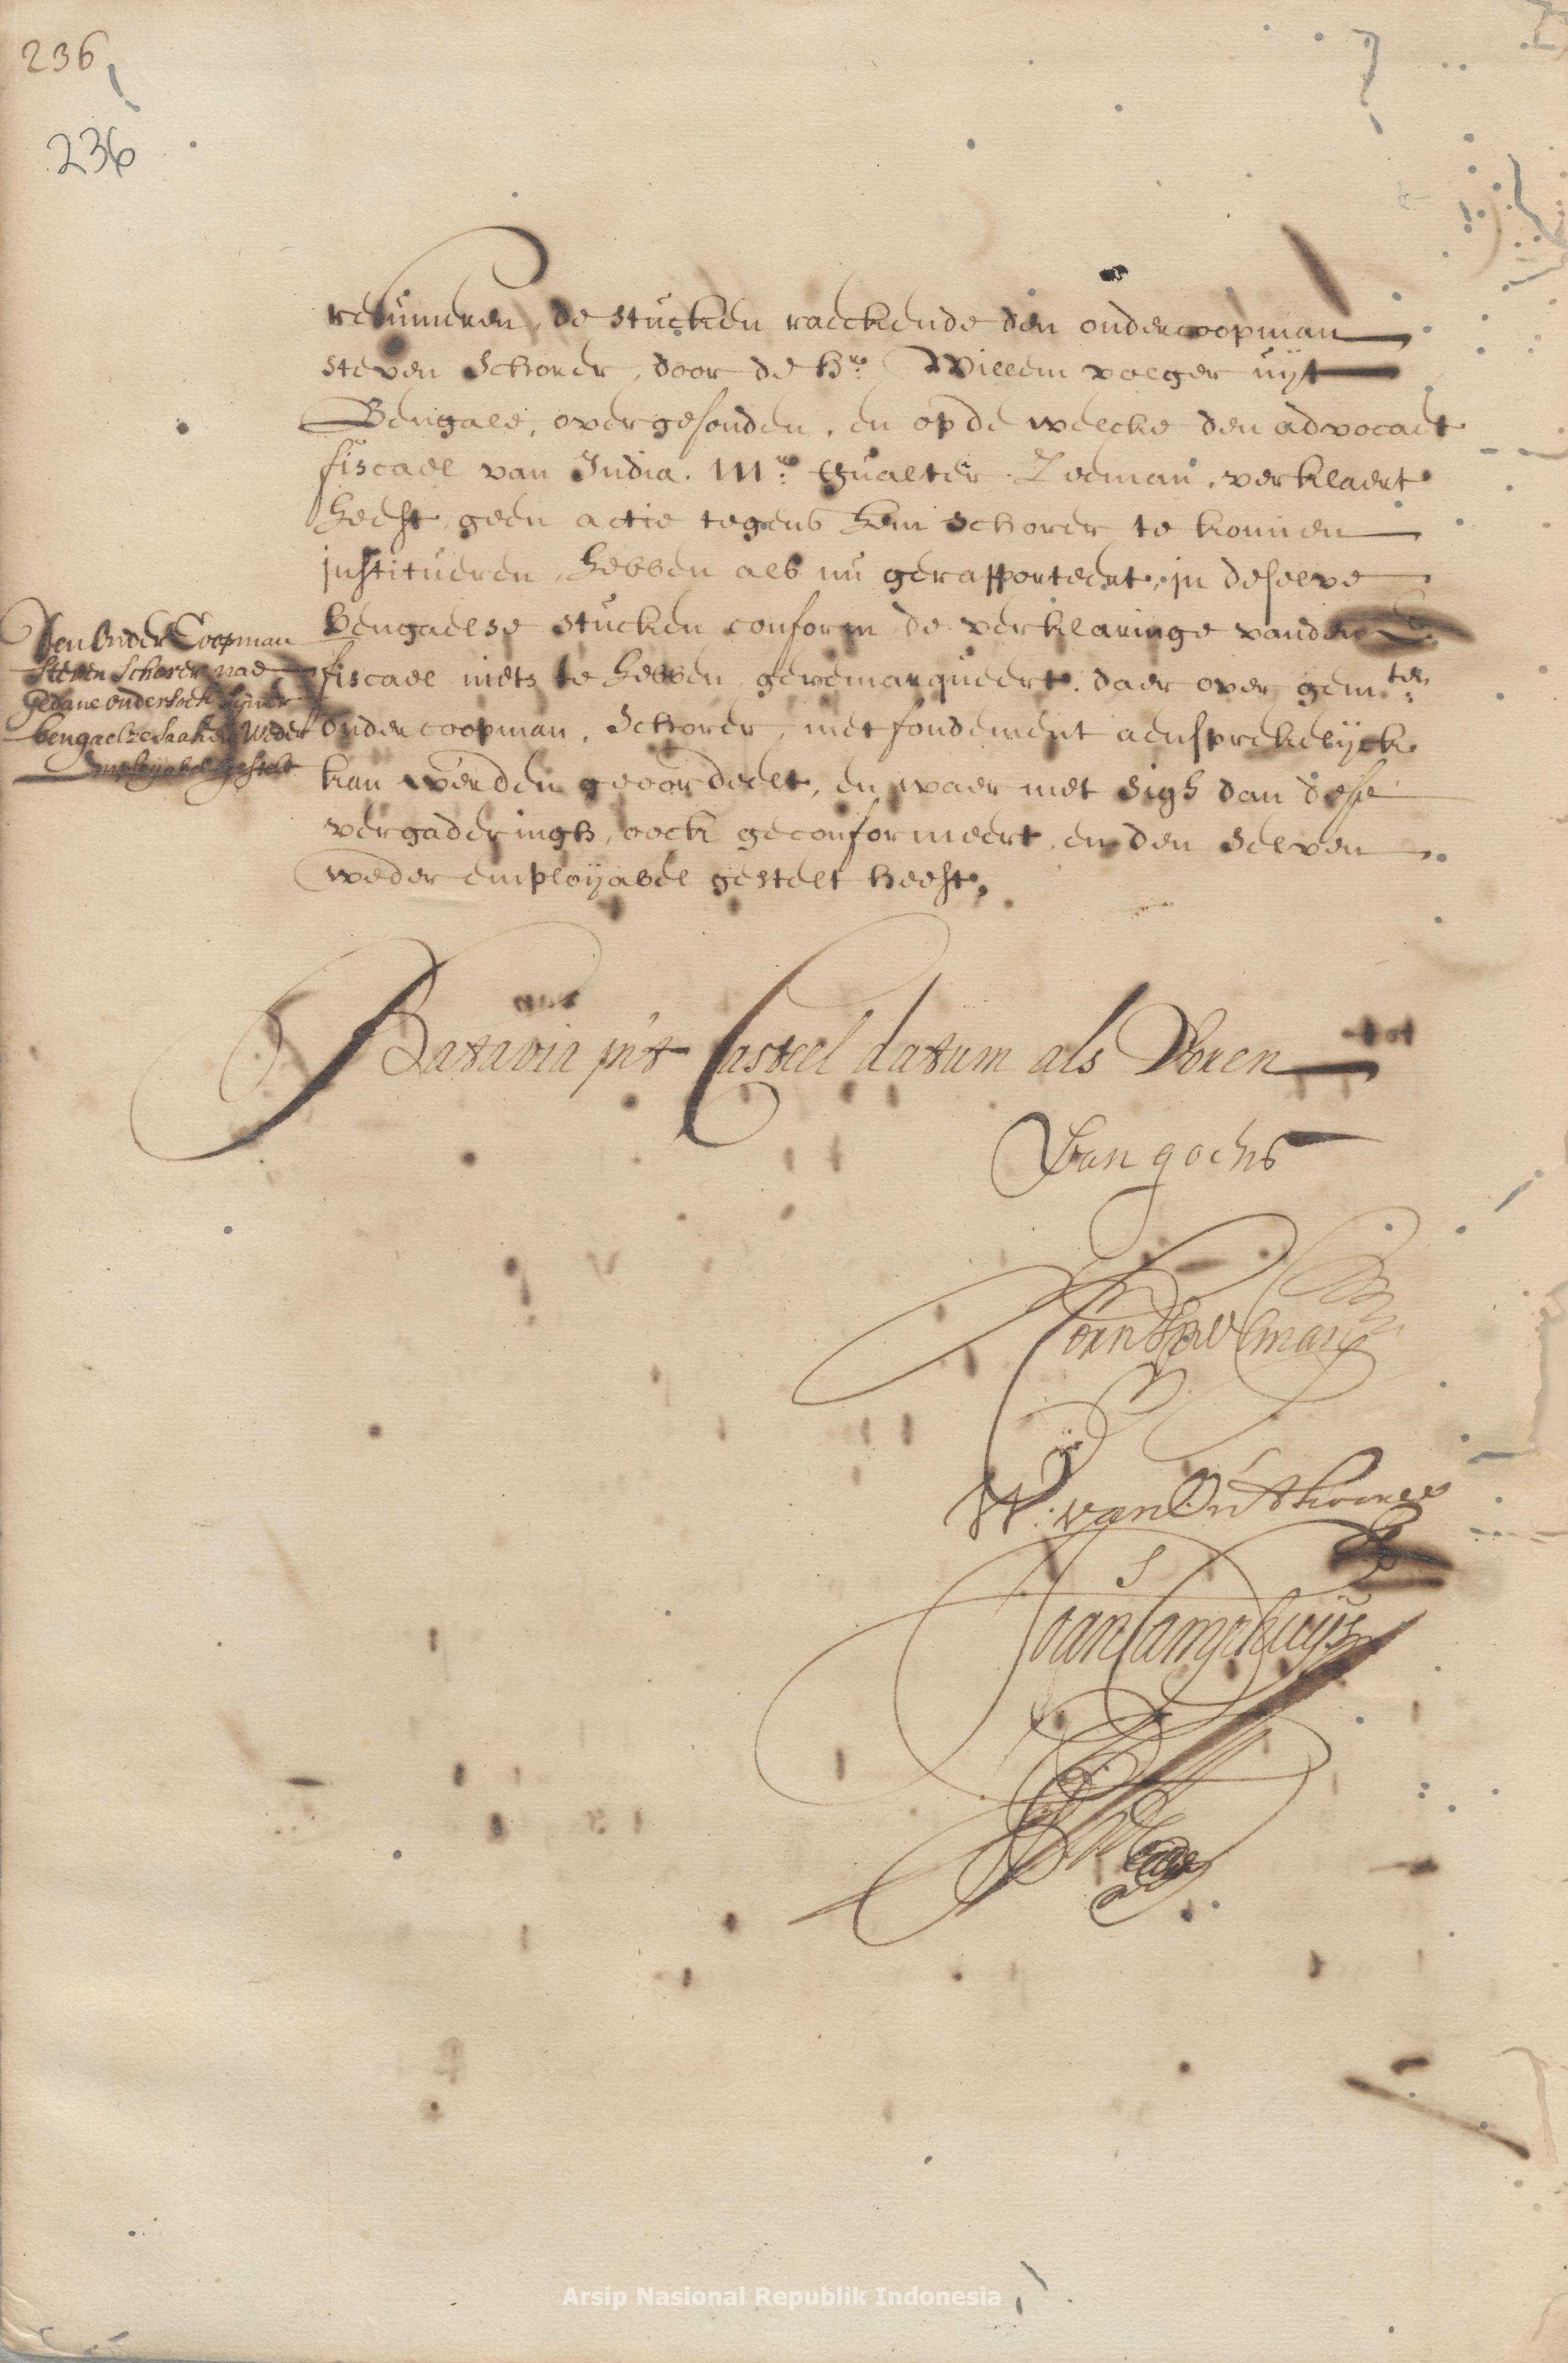 236
236
resumeren, de stucken raeckende den ondercoopman
steven Schorer, door de Hr: Willem volger uijt
Bengale, overgesonden, en op de welcke den advocaet
fiscael van India. Mr: Gualter Zeeman, verklaert
heeft, geen actie tegens hem Schorer te konnen
institueren, hebben als nu gerapporteert, in deselve
Bengaelse stucken conform de verklaringe vanden
fiscael niets te hebben geremarqueert, daer over gemten
ondercoopman, Schorer, met fondement aensprekelijck
kan werden geoordeelt, en waer met sigh dan dese
vergaderingh, oock geconformeert, en den selven
weder emploijabel gestelt heeft,
Den Onder Coopman
Steven Schorer nae
gedane ondersoek sijner
bengaelze saken weder
Emploijabel gestelt
Batavia in't Casteel datum als Voren
Van goens
W: van Outhoorn
Joan Camphuijs
Arsip Nasional Republik Indonesia